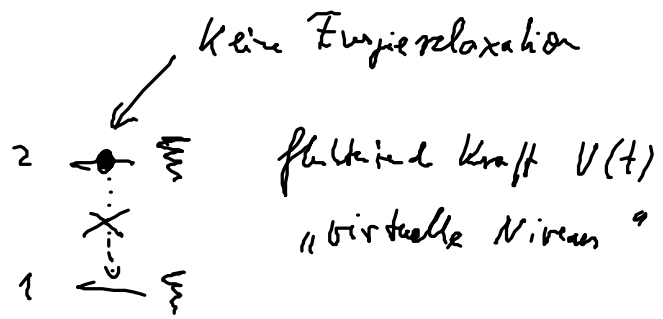 Keine Energierelaxation
2 fluktuierende Kraft V(t)
„virtuelle Niveaus“
1